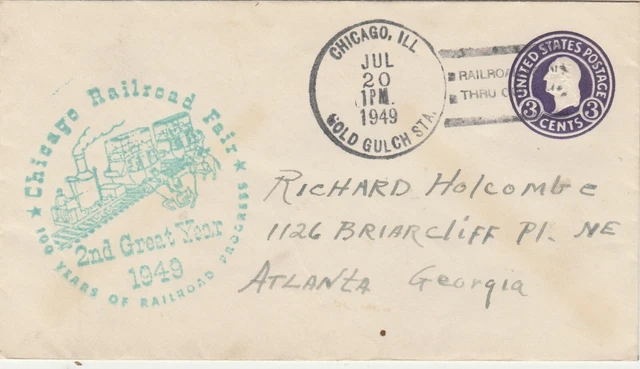 CHICAGO, ILL
JUL
20
1PM.
1949
GOLD GULCH STA.
RAILROA
THRU
UNITED STATES POSTAGE
3 CENTS 3
★ Chicago Railroad Fair ★
2nd Great Year
1949
100 YEARS OF RAILROAD PROGRESS
RICHARD Holcombe
1126 BRIARCliff Pl. NE
ATLANTA Georgia